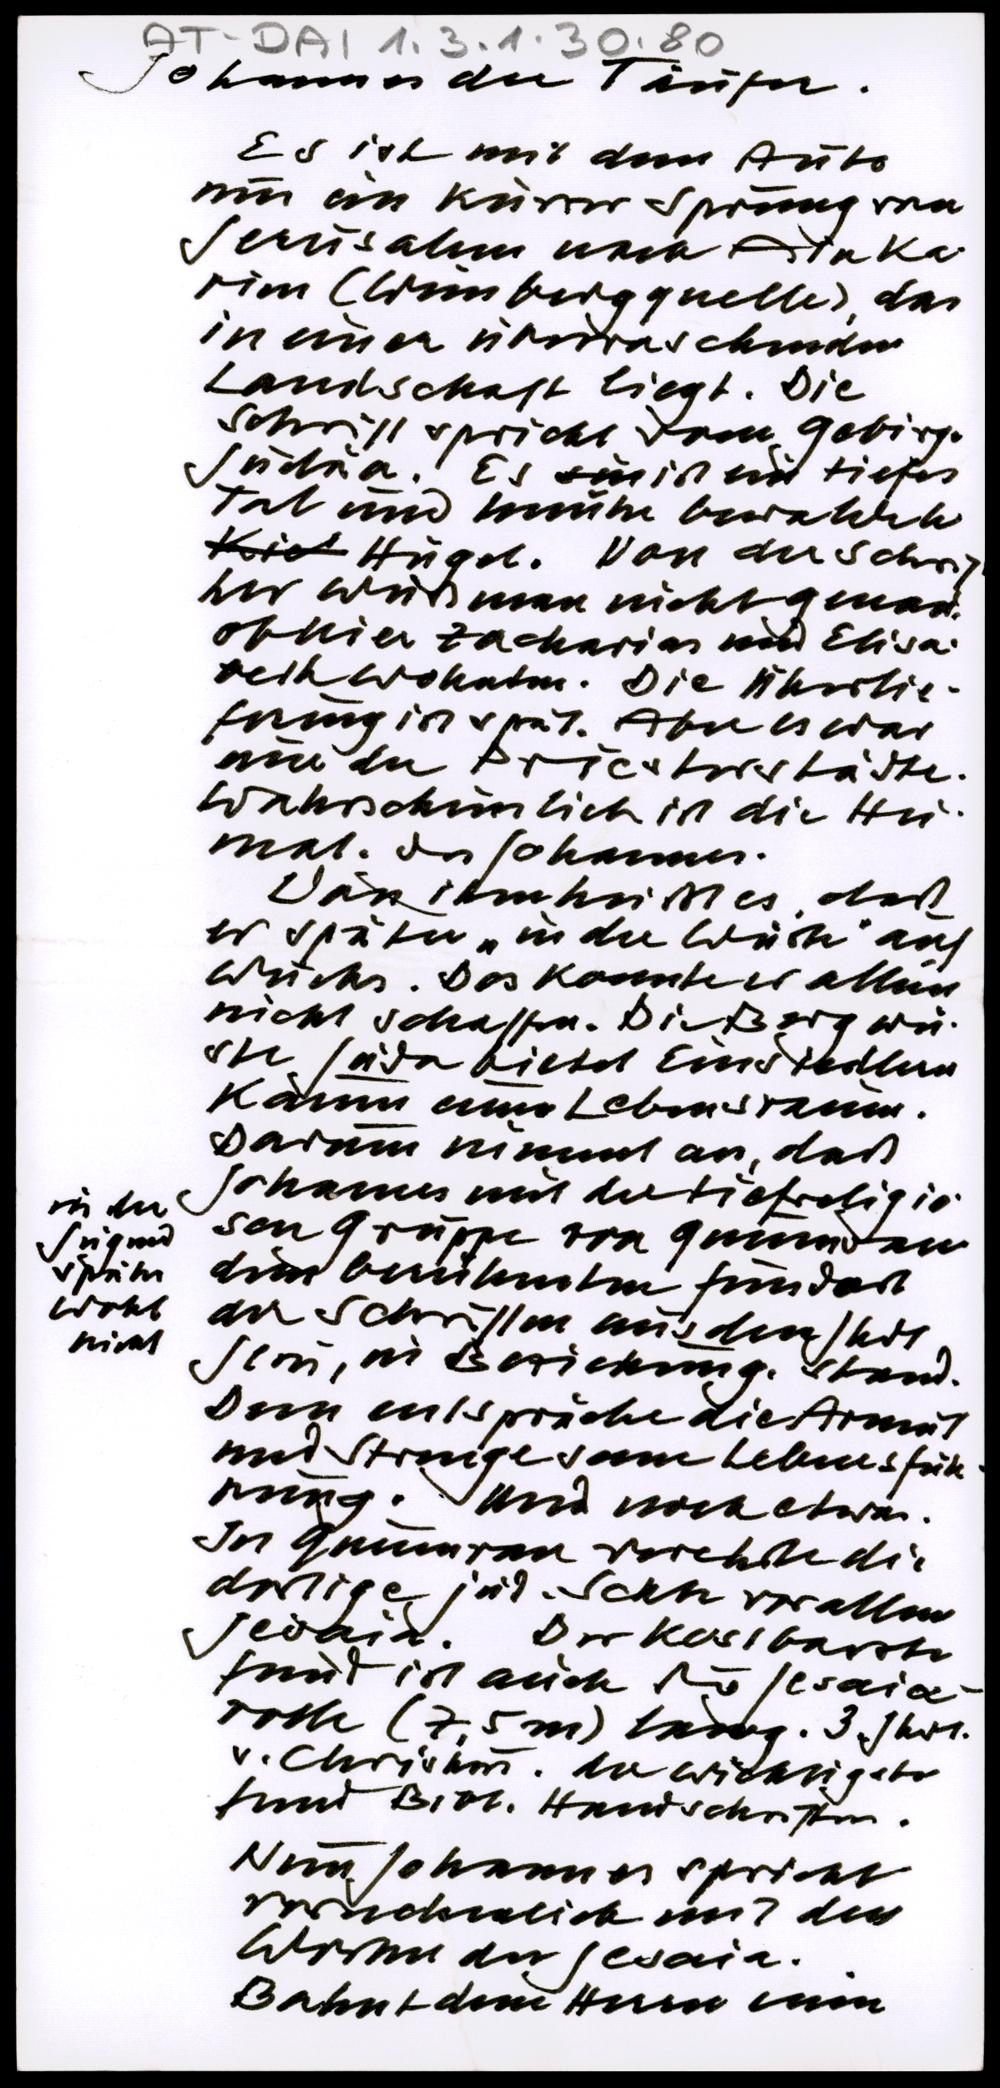 AT-DAI 1.3.1.30.80
Johannes der Täufer.
Es ist mit dem Auto
nur ein kurzer Sprung von
Jerusalem nach Ain Ka-
rim (Weinbergquelle), das
in einer überraschenden
Landschaft liegt. Die
Schrift spricht vom Gebirge
Judäa. Es ist ein tiefes
Tal und heute bewaldete
Hügel. Von der Schrift
her weiß man nicht genau,
ob hier Zacharias und Elisa-
beth wohnten. Die Überlie-
ferung ist spät. Aber es war
eine der Priesterstädte.
Wahrscheinlich ist die Hei-
mat des Johannes.
Von ihm heißt es, daß
er später „in der Wüste" auf
wuchs. Das konnte er allein
nicht schaffen. Die Bergwü-
ste Juda bietet Einsiedlern
kaum einen Lebensraum.
Darum nimmt an, daß
Johannes mit der tiefreligiö-
sen Gruppe von Qumran
dem berühmten Fundort
der Schriften aus der Zeit
Jesu, in Beziehung stand.
in der
Jugend
später
wohl
nicht
Dem entspräche die Armut
und Strenge seiner Lebensfüh-
rung. Und noch etwas.
In Qumran verehrte die
dortige jüd. Sekte vor allem
Jesaia. Der kostbarste
Fund ist auch die Jesaia-
rolle (7,5 m) lang. 3. Jhrt.
v. Christus. der wichtigste
Fund Bibl. Handschriften.
Nun Johannes spricht
vornehmlich mit den
Worten des Jesaia.
Bahnt dem Herrn einen